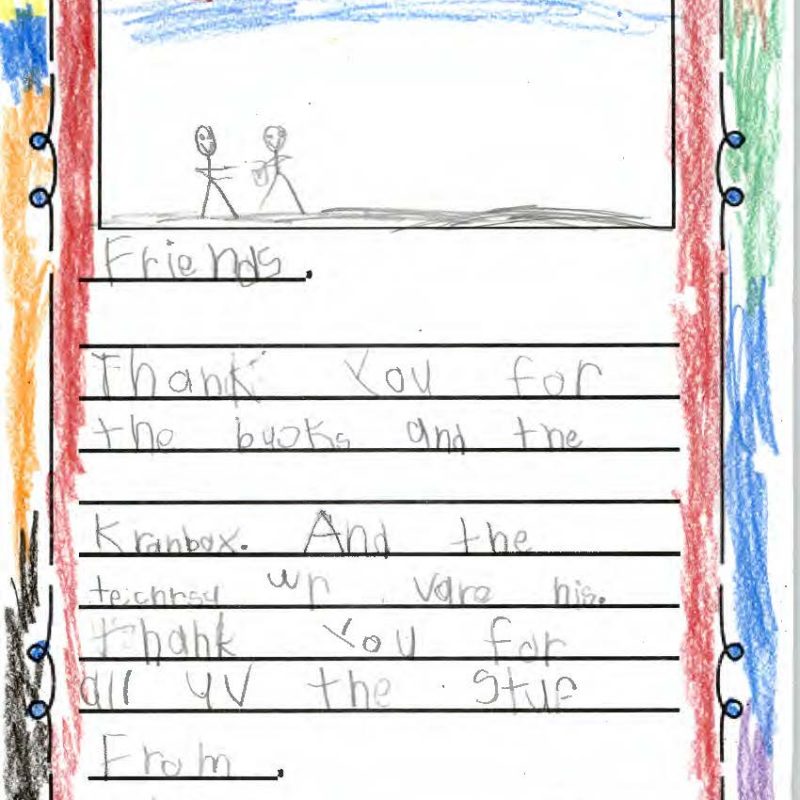 Friends,
Thank You for
the books and the
Kranbox. And the
teichrsd wr vare nis.
Thank You for
all uv the stuf
From,